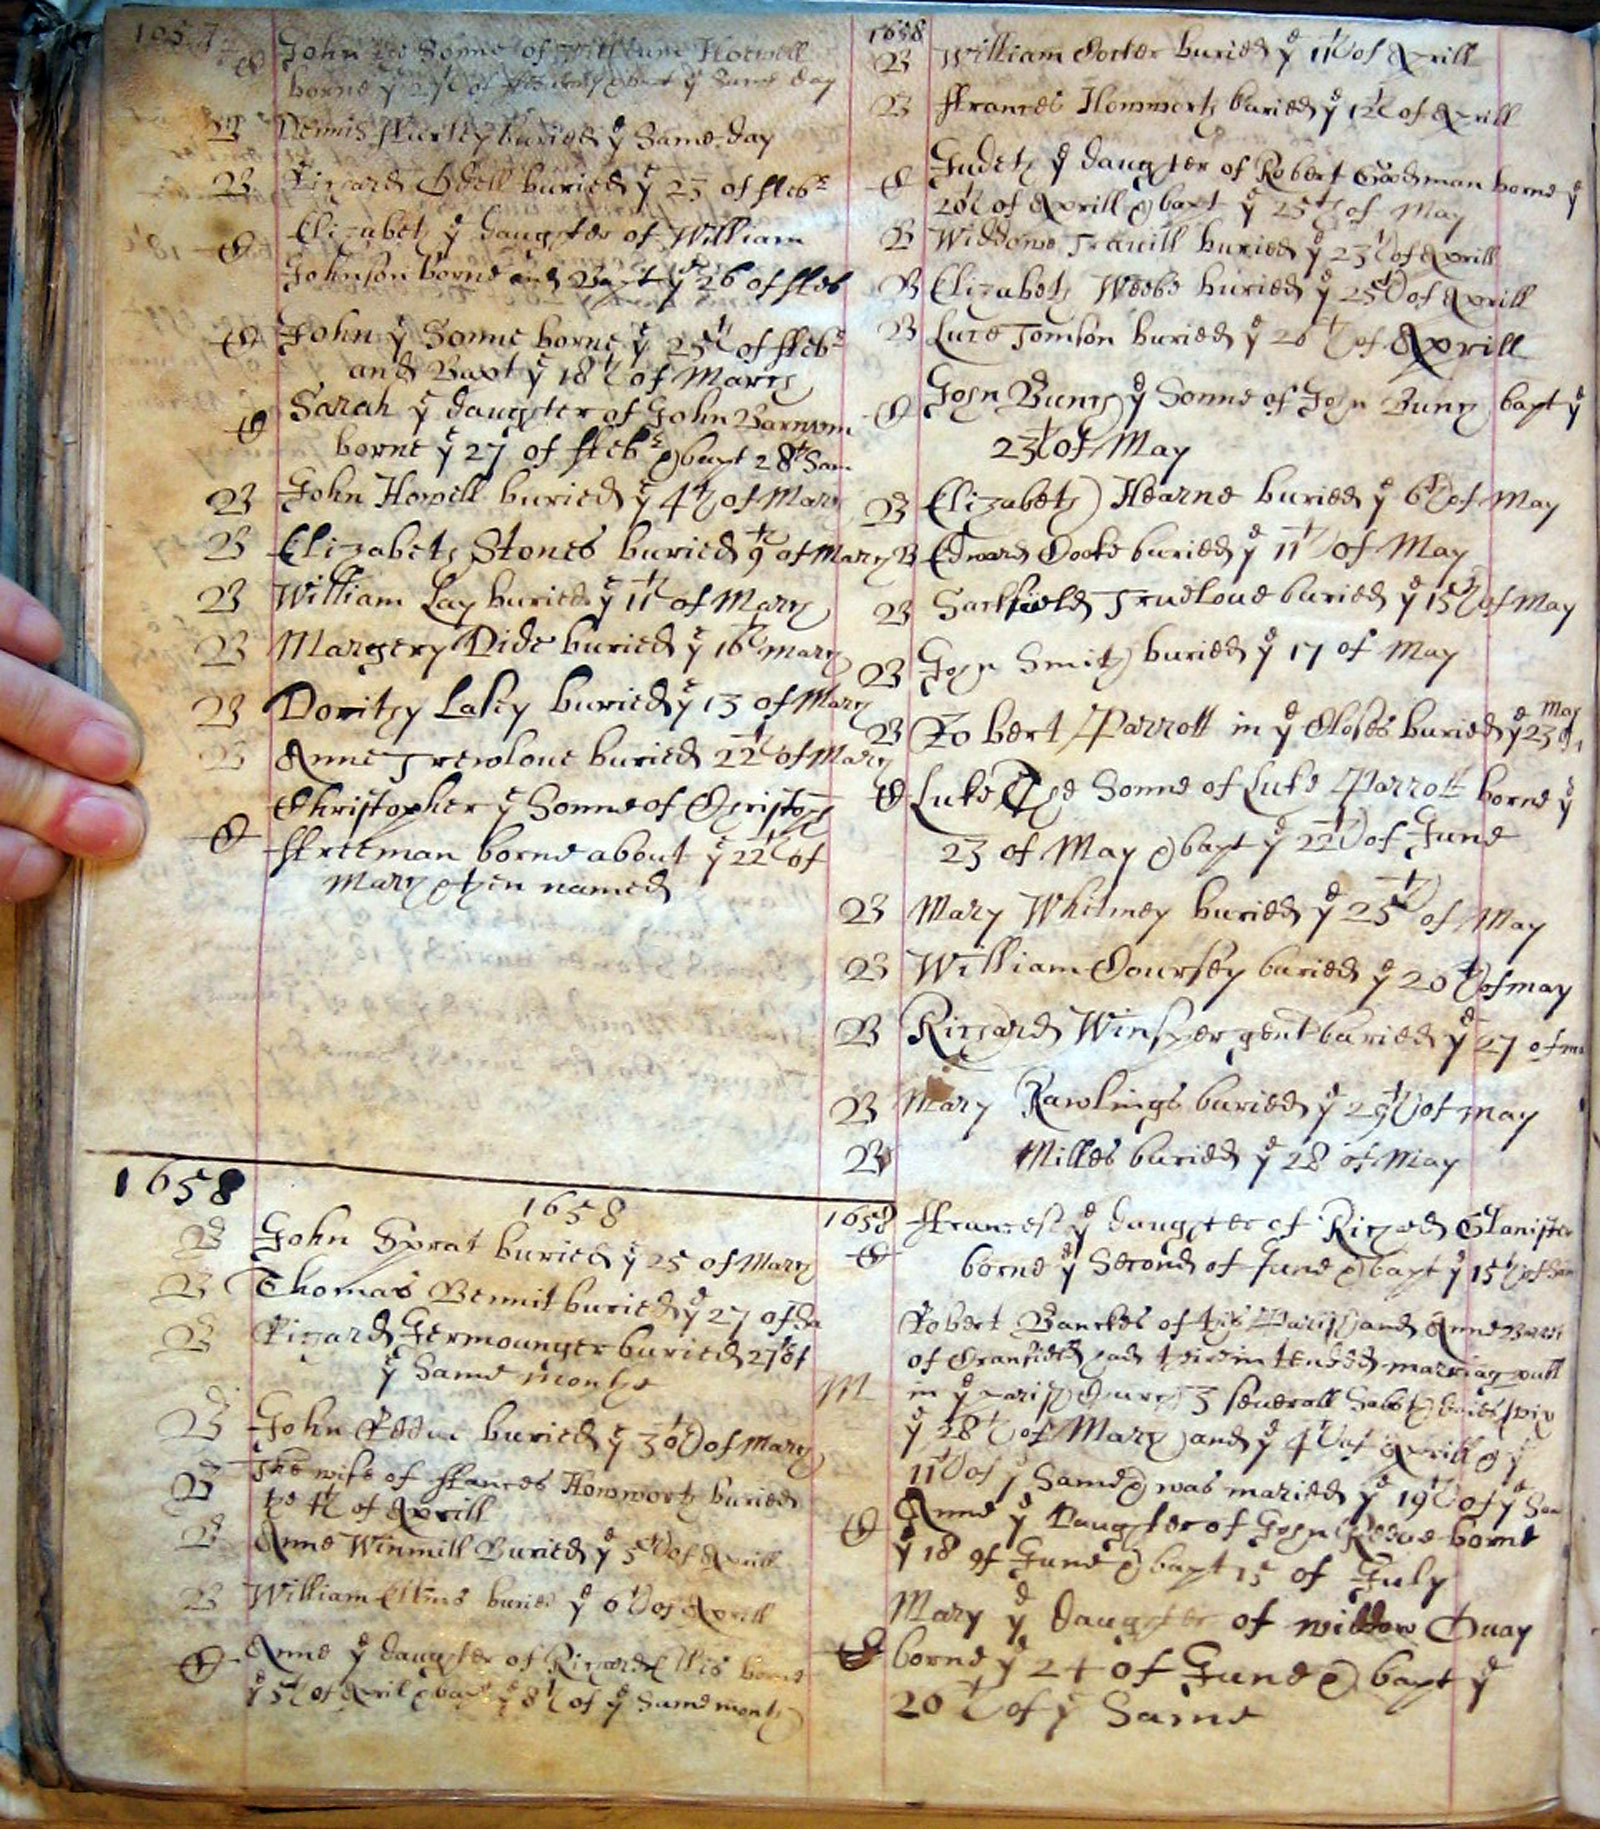 1657
John the Sonne of William Howell
borne ye 27th of & bapt ye Same day
B Dennis Hurley buried ye Same day
B Richard Odell buried ye 23 of ffebr
C Elizabeth ye daughter of William
Johnson borne and Bapt ye 26 of ffeb
C John ye Sonne borne ye 25th of ffebr
and Bapt ye 18th of March
C Sarah ye daughter of John Barnom
borne ye 27 of ffebr & bapt 28th Sam
B John Howell buried ye 4th of March
B Elizabeth Stones buried 9th of March
B William Lay buried ye 11th of March
B Margery Dide buried ye 16th March
B Dorithy Lakey buried ye 13 of March
B Anne Trewloue buried 22th of March
Christopher ye Sonne of Christoph
C ffreeman borne about ye 22th of
March & then named
1658
1658
B John Sprat buried ye 25 of March
B Thomas Bennit buried ye 27 of Sa
B Richard Germounger buried 27th of
ye Same monthe
B John buried ye 30th of March
B The wife of ffrances Howworth buried
the 4th of Aprill
B Anne Winmill Buried ye 5th of Aprill
B William Ellms buried ye 6th of Aprill
C Anne ye daughter of Richard Ellis borne
ye 5th of April & bapt ye 8th of ye Same month
1658
B William Cocker buried ye 11th of Aprill
B ffrances Howworth buried ye 12th of Aprill
C Judeth ye daughter of Robert Goodman borne ye
20th of Aprill & bapt ye 25th of May
B Widdowe Trauill buried ye 23th of Aprill
B Elizabeth Weebe buried ye 25th of Aprill
B Luce Tomson buried ye 26th of Aprill
C John Bunch ye Sonne of John Bunch bapt ye
23th of May
B Elizabeth Hearne buried ye 6th of May
B Edward Cooke buried ye 11th of May
B Sackfield Trueloue buried ye 15th of May
B John Smith buried ye 17 of May
B Robert Parrott in ye Closes buried ye 23 of May
C Luke The Sonne of Luke Parrott borne ye
23 of May & bapt ye 22th of June
B Mary Whitmey buried ye 25th of May
B William Coursey buried ye 26th of may
B Richard Winsper gent buried ye 27 of ma
B Mary Rawlings buried ye 29th of may
B Milles buried ye 28 of May
1658 ffrances ye daughter of Richard Glanister
C borne ye Second of June & bapt ye 15th of Sam
Robert Banckes of this Parish and Anne
of Cranfield had their intended marriag publ
M in ye parish Church 3 seuerall Sabbth daies viz
ye 28th of March and ye 4th of Aprill & ye
11th of ye Same & was maried ye 19th of ye Sam
C Anne ye Daughter of John Reeue borne
ye 18 of June & bapt 15 of July
Mary ye daughter of widdow Quay
C borne ye 24 of June & bapt ye
26th of ye Same